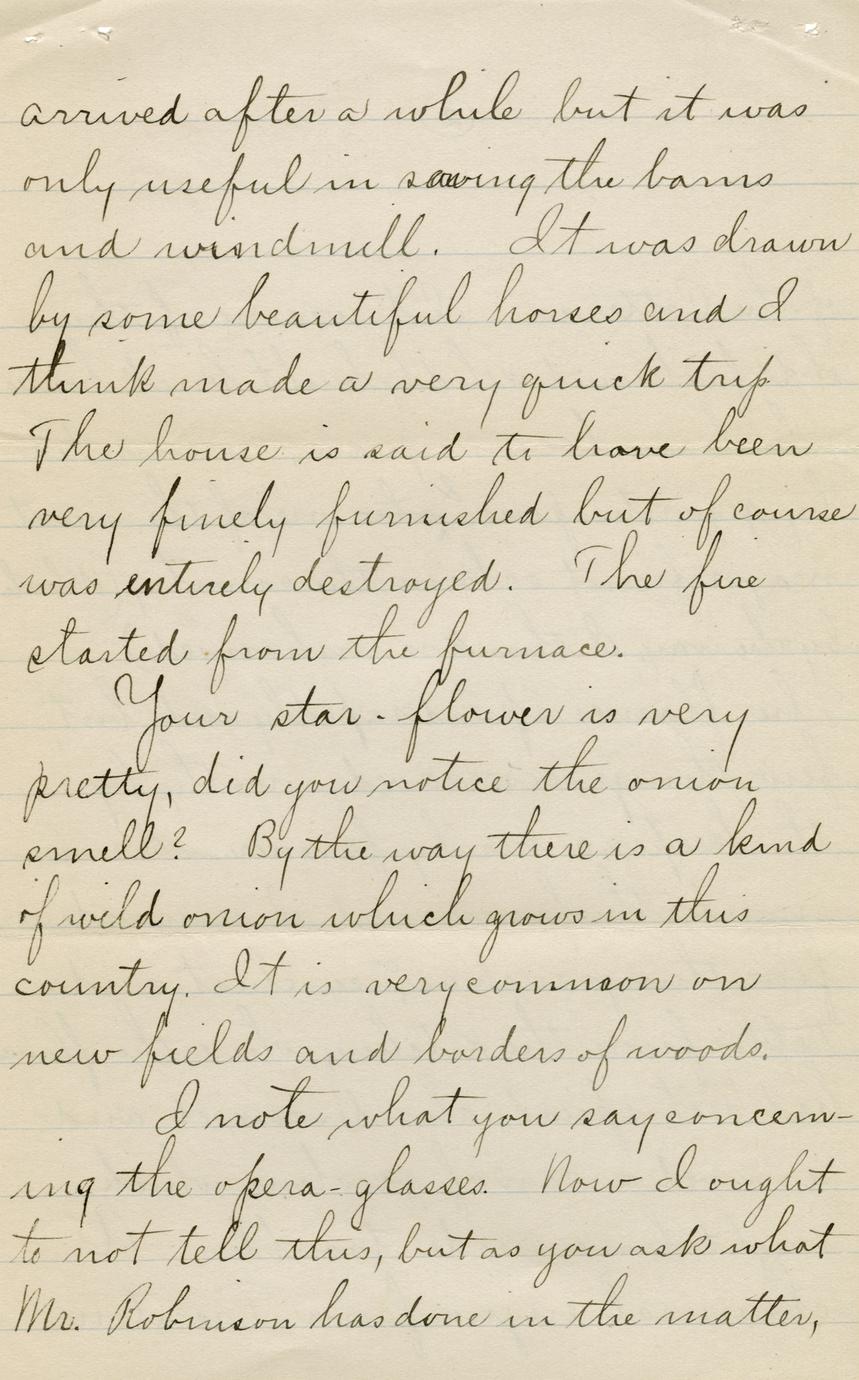 arrived after a while but it was
only useful in saving the barns
and windmill. It was drawn
by some beautiful horses and I
think made a very quick trip.
The house is said to have been
very finely furnished but of course
was entirely destroyed. The fire
started from the furnace.
Your star-flower is very
pretty, did you notice the onion
smell? By the way there is a kind
of wild onion which grows in this
country. It is very common on
new fields and borders of woods.
I note what you say concern-
ing the opera-glasses. Now I ought
to not tell this, but as you ask what
Mr. Robinson has done in the matter,